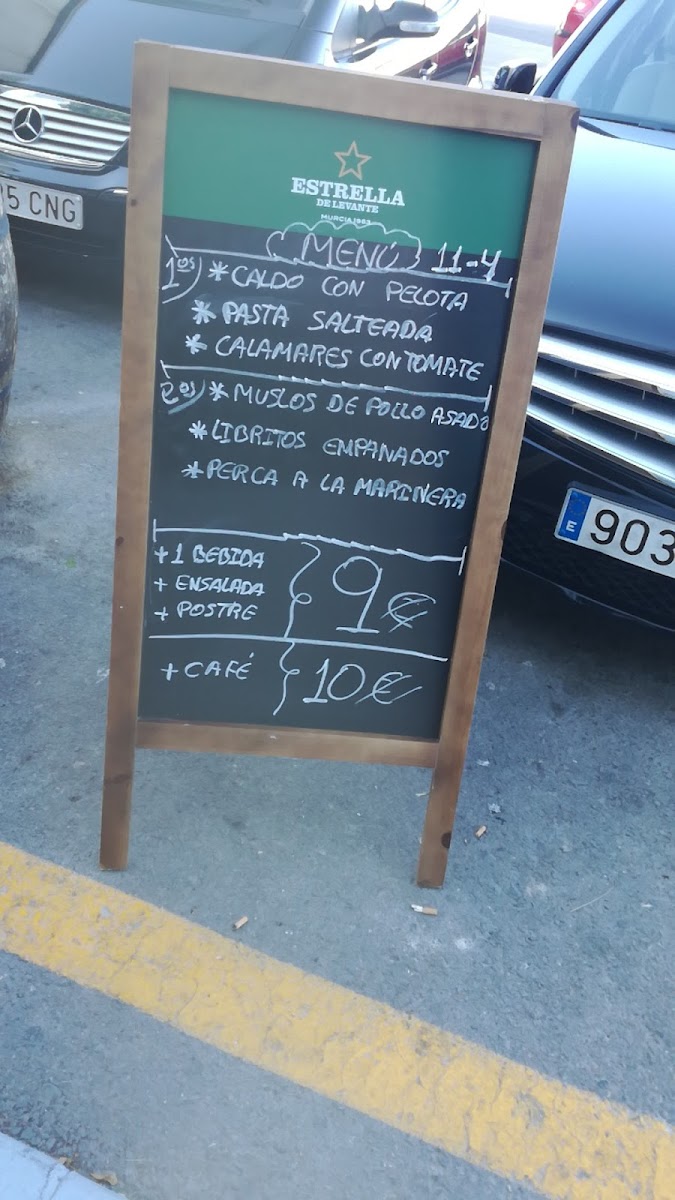 5 CNG
ESTRELLA
DE LEVANTE
MURCIA 1963
MENÚ 11-4
1os * CALDO CON PELOTA
* PASTA SALTEADA
* CALAMARES CON TOMATE
2os * MUSLOS DE POLLO ASADO
* LIBRITOS EMPANADOS
* PERCA A LA MARINERA
E 903
+ 1 BEBIDA
+ ENSALADA
+ POSTRE
9€
+ CAFÉ 10€